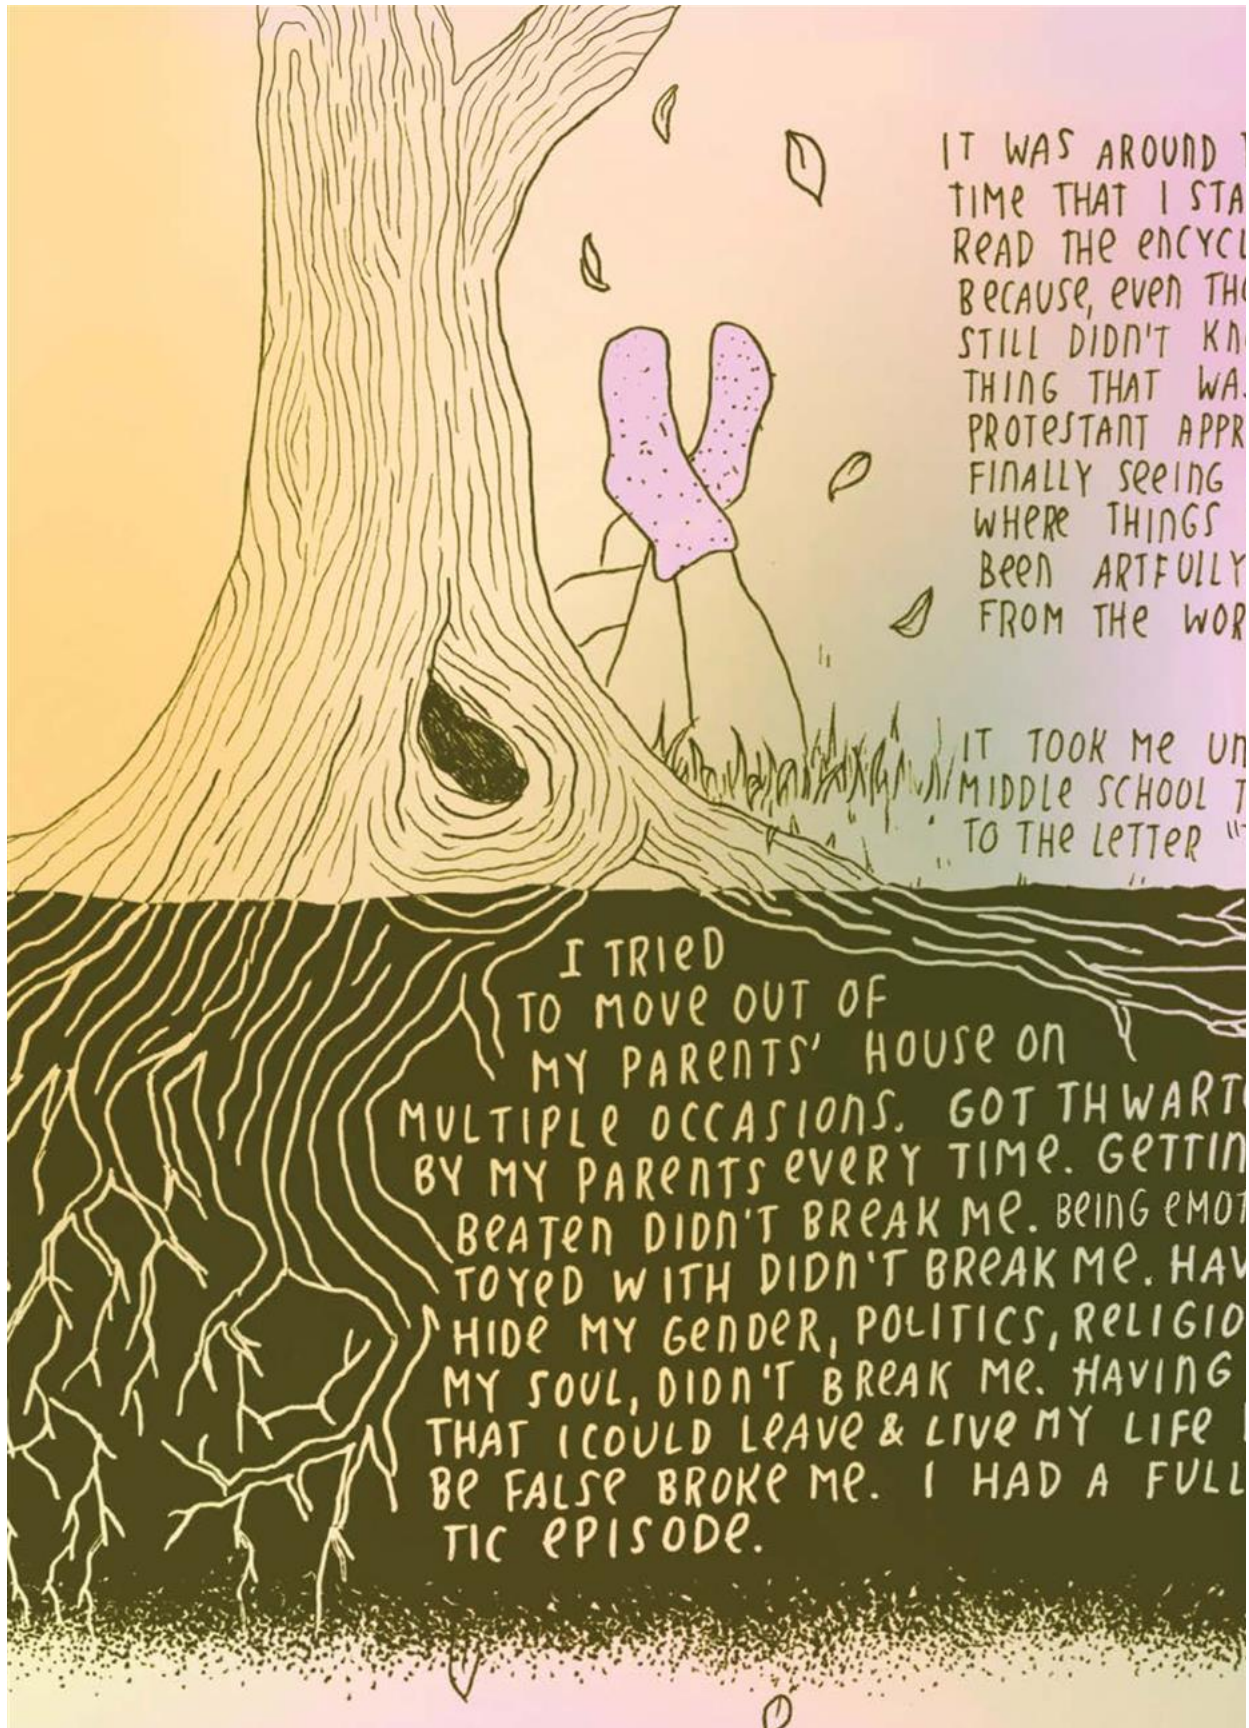 IT WAS AROUND
TIME THAT I STA
READ THE ENCYCL
BECAUSE, EVEN THO
STILL DIDN'T KNO
THING THAT WAS
PROTESTANT APPR
FINALLY SEEING
WHERE THINGS
BEEN ARTFULLY
FROM THE WOR
IT TOOK ME UN
MIDDLE SCHOOL T
TO THE LETTER "T
I TRIED
TO MOVE OUT OF
MY PARENTS' HOUSE ON
MULTIPLE OCCASIONS. GOT THWARTE
BY MY PARENTS EVERY TIME. GETTIN
BEATEN DIDN'T BREAK ME. BEING EMOT
TOYED WITH DIDN'T BREAK ME. HAV
HIDE MY GENDER, POLITICS, RELIGIO
MY SOUL, DIDN'T BREAK ME. HAVING
THAT I COULD LEAVE & LIVE MY LIFE
BE FALSE BROKE ME. I HAD A FULL
TIC EPISODE.